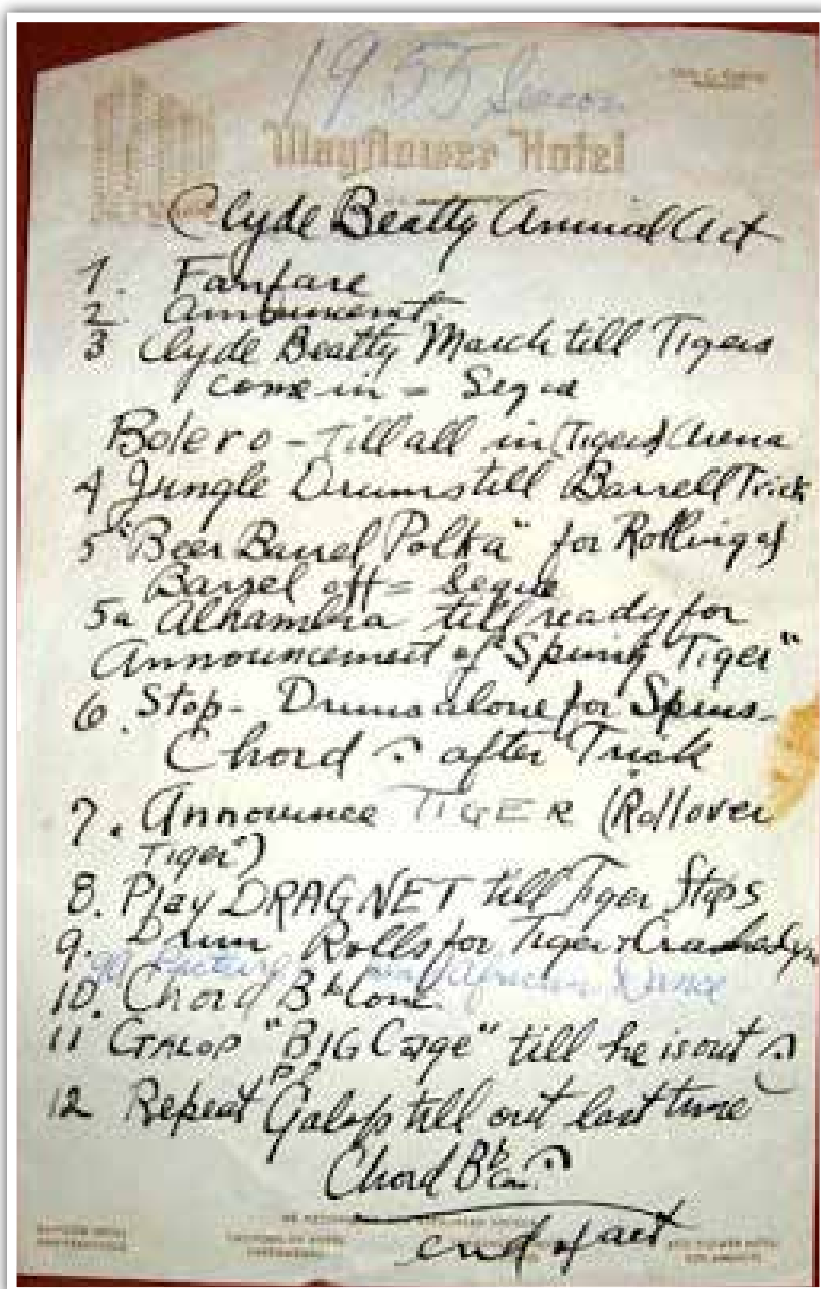 1955 Season
Mayflower Hotel
Clyde Beatty Animal Act
1. Fanfare
2. Announcement
3 Clyde Beatty March till Tigers
come in = Segue
Bolero - till all in (Tigers) Arena
4 Jungle Drums till Barrell Trick
5 "Beer Barrel Polka" for Rolling of
Barrel off = Segue
5a Alhambra till ready for
Announcement of "Spinng Tiger"
6. Stop - Drums alone for Spins -
Chord 𝄐 after Trick
7. Announce TIGER (Rollover
Tiger")
8. Play DRAGNET till Tiger Stops
9. Drum Rolls for Tiger +
9A African Dance
10. Chord B♭
11 GALOP "BIG Cage" till he is out 𝄐
12 Repeat Galop till out last time
Chord B♭ 𝄐
end of act